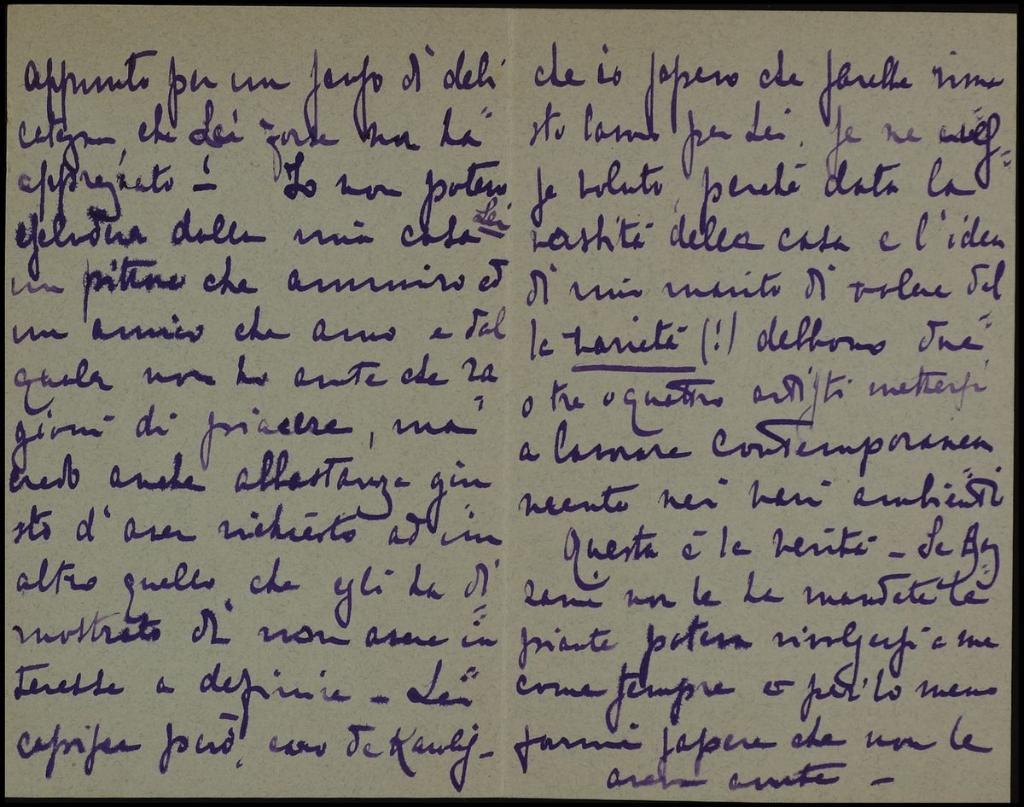 appunto per un senso di deli
catezza che Lei forse non ha
apprezzato –! Io non potevo
escludere dalla mia casa Lei
un pittore che ammiro ed
un amico che amo e dal
quale non ho avute che ra
gioni di piacere, ma
credo anche abbastanza giu
sto d'aver richiesto ad un
altro quello che egli ha di
mostrato di non avere in
teresse a definire – Lei
capisce però, caro de Karolis –
che io sapevo che sarebbe rima
sto lavoro per Lei, se ne aves=
se voluto, perché data la
vastità della casa e l'idea
di mio marito di volere del
la varietà (!) debbono due
o tre o quattro artisti mettersi
a lavorare contemporanea
mente nei vari ambienti
Questa è la verità – Se Baz
zani non le ha mandate le
piante poteva rivolgersi a me
come sempre o per lo meno
farmi sapere che non le
aveva avute –